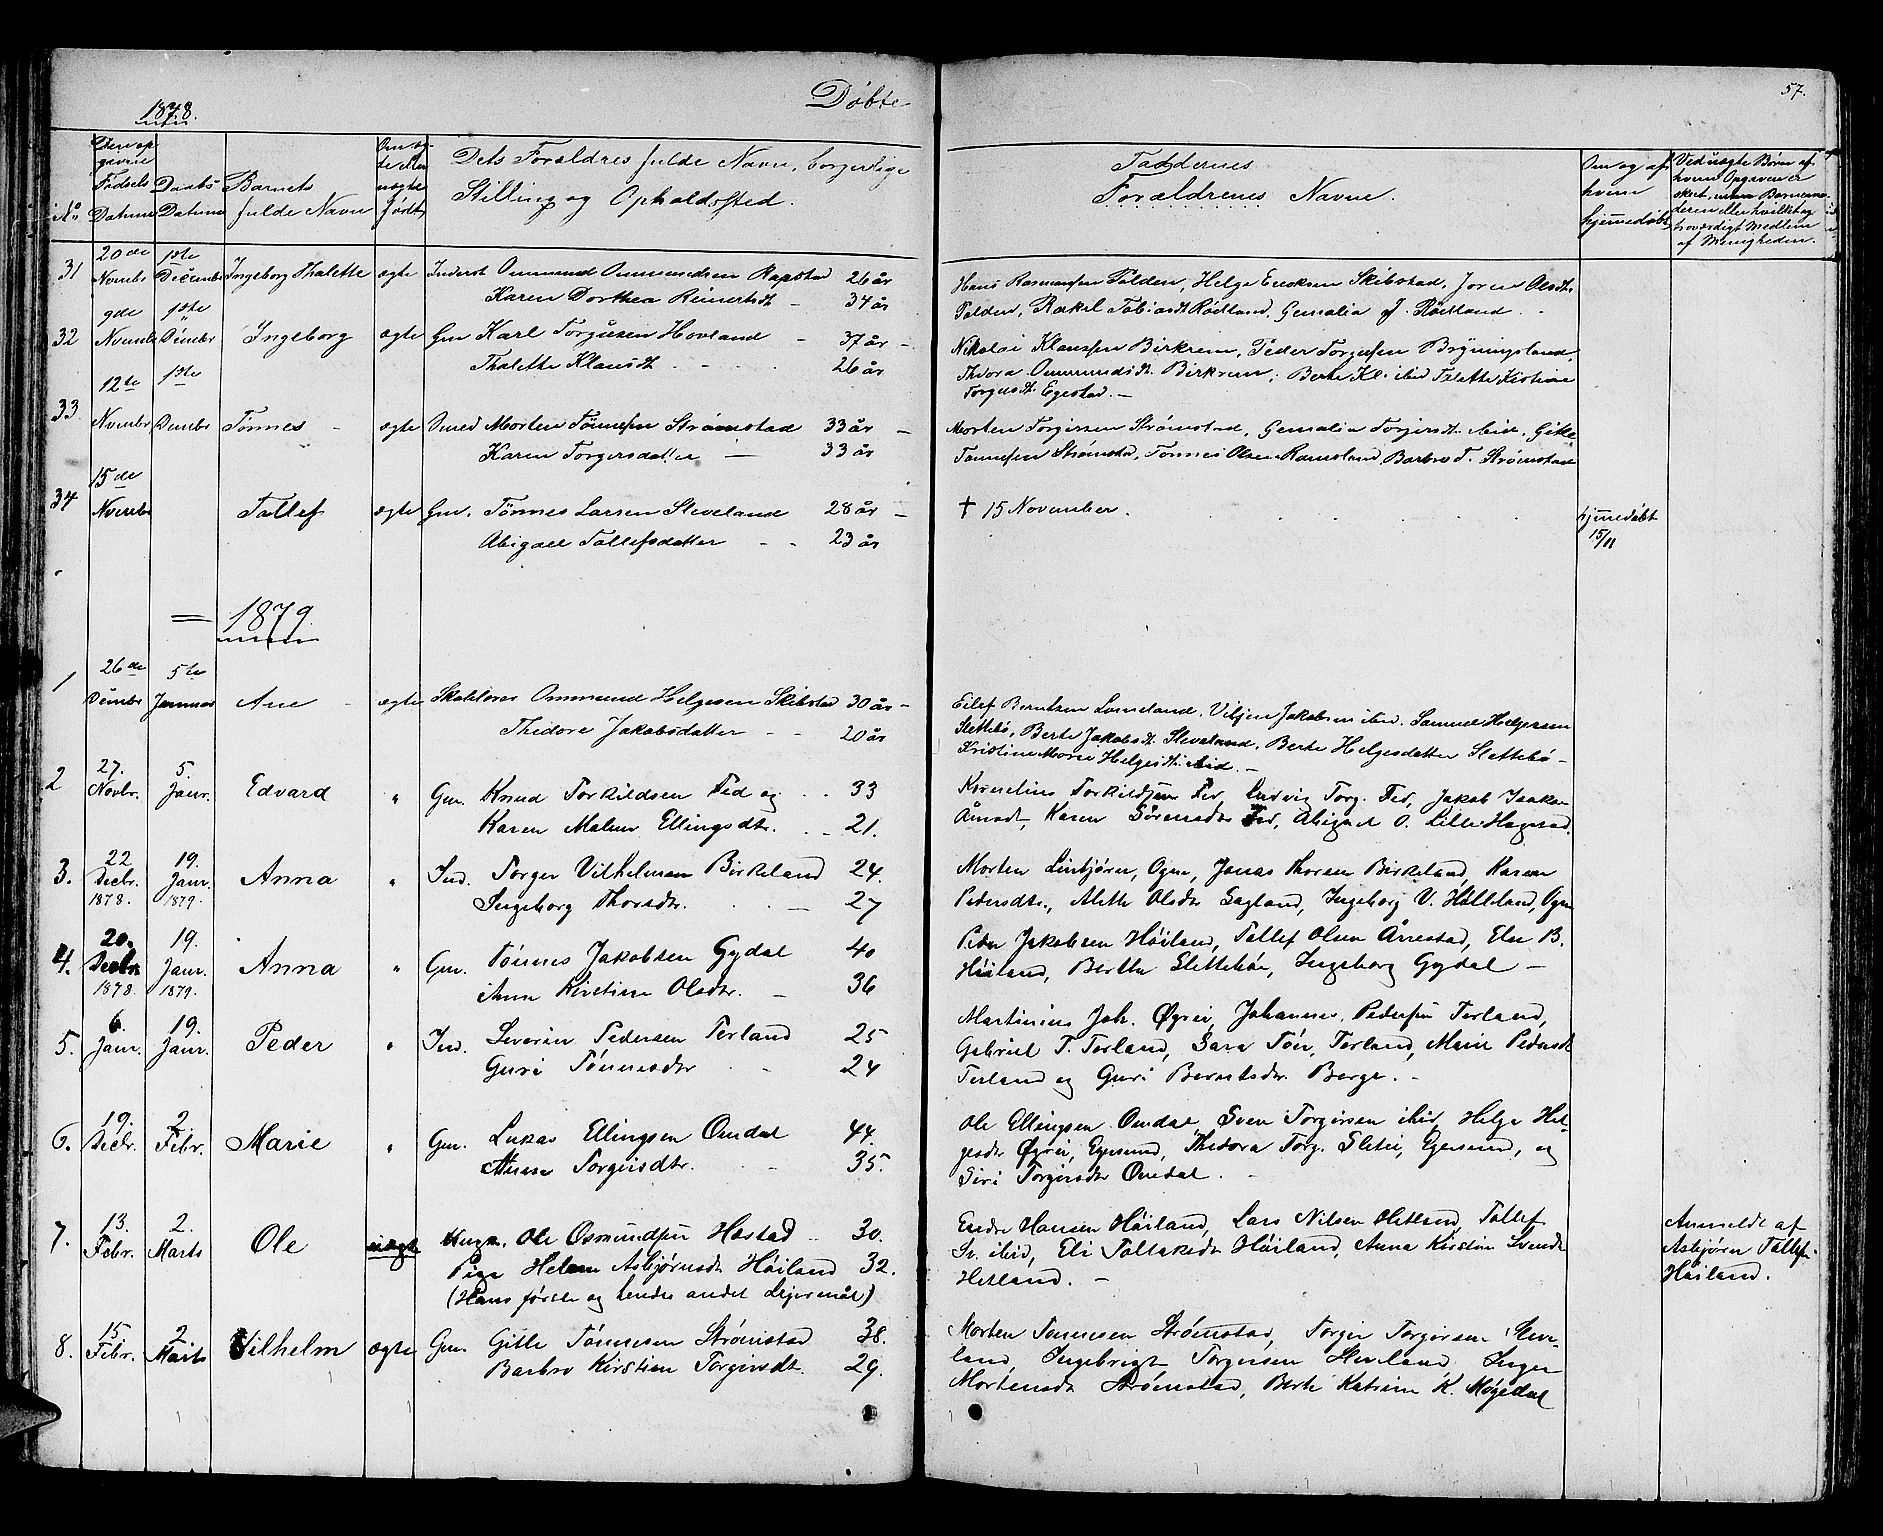 1878.
Døbte
57.
No.
Den opgivne Fødsels Datum
Daabs Datum
Barnets fulde Navn
Om ægte eller uægte født
Dets Forældres fulde Navn, borgerlige
Stilling og Opholdssted.
Faddernes
Forældrenes Navne.
Om og af hvem hjemmedøbt
Ved uægte Børn af
hvem Opgaven er
skeet, uden Barnemo-
deren eller hvilket og
troværdigt Medlem
af Menigheden.
31 20de Novembr 1ste Decembr Ingeborg Thalette ægte Inderst Ommund Ommundsen Rapstad 26 år
Karen Dorthea Reinertsdt - 34 år
Hans Rasmussen Polden, Helge Eriksen Skibstad, Joren Olsdt.
Polden, Rakel Tobiasdt Rødland, Gemalia J. Rødland.
32 9de Novembr 1ste Decmbr Ingeborg ægte Gm Karl Torgusen Hovland - 37 år -
Thalette Klausdt - 26 år
Nikolai Klaussen Birkrem, Peder Torgussen Bryningsland,
Thedora Ommundsdt. Birkrem, Berte Kl. ibid Talette Kistine
Torgusdt. Egestad. -
33 12te Novmbr 1ste Decmbr Tønnes - ægte Gmd Morten Tønnessen Strømstad 33 år -
Karen Torgersdatter - 33 år
Morten Torgersen Strømstad, Gemalia Torgersdt. ibid. Gitle
Tønnessen Strømstad, Tønnes Olsen Ramsland, Barbro T. Strømstad
34 15de Novembr Tollef ægte Gm. Tønnes Larsen Sleveland 28 år -
Abigael Tollefsdatter - - 23 år
† 15 November.
hjemmedøbt
15/11
= 1879.
1 26de Decmbr 5te Januar Ane - ægte Skolelærer Ommund Helgesen Skibstad 30 år -
Thedore Jakobsdatter - - 20 år
Eilef Berntsen Lomeland, Viljen Jakobsen ibid. Samuel Helgesen
Slettebø, Berte Jakobsdt. Sleveland, Berte Helgesdatter Slettebø -
Kristine Marie Helgesdt. ibid. -
2 27. Novbr. 5. Janr. Edvard " Gm. Knud Torkildsen Fed og - - 33
Karen Malene Ellingsdtr. - - 21.
Kornelius Torkildsen Fed, Ludvig Torg. Fed, Jakob Isaksen
Åmodt, Karen Sørensdtr Fed, Abigael O. Lille Hagestad.
3. 22 Decbr. 1878. 19. Janr. 1879. Anna " Ind. Torger Vilhelmsen Birkeland 24.
Ingeborg Thorsdtr. - 27
Morten Linbjørn, Ogne, Jonas Thorsen Birkeland, Karen
Pedersdtr., Alette Olsdtr Sagland, Ingeborg V. Hålleland, Ogne
4. 20. Decbr 1878. 19. Janr. 1879. Anna " Gm. Tønnes Jakobsen Gydal 40
Anne Kirstine Olsdtr. - 36
Peder Jakobsen Høiland, Tollef Olsen Årrestad, Else B.
Høiland, Berthe Slettebøe, Ingeborg Gydal -
5. 6. Janr. 19. Janr. Peder " Ind. Severin Pedersen Terland 25
Guri Tønnesdtr - - 24
Martinius Joh. Øgrei, Johannes Pedersen Terland,
Gabriel T. Terland, Sara Tøn, Terland, Marie Pedersdt
Terland og Guri Berntsdtr. Berge. -
6. 19. Decbr. 2 Febr. Marie " Gm. Lukas Ellingsen Omdal 44.
Anna Torgersdtr. - 35.
Ole Ellingsen Omdal, Sven Torgersen ibid, Helga Hel-
gesdtr Øgrei, Egersund, Thedora Torg. Slettei, Egersund, og
Siri Torgersdtr Omdal. -
7. 13. Febr. 2. Marts Ole uægte Ungk. Ole Osmundsen Hæstad .. 30.
Pige Helene Asbjørnsdt Høiland 32.
(Hans første og hendes andet Lejermål)
Endre Hansen Høiland, Lars Nilsen Hetland, Tollef
Sv. ibid, Eli Tollaksdt Høiland, Anna Kirstine Svendsdt
Hetland. -
Anmeldt af
Asbjørn Tollefs.
Høiland.
8. 15. Febr. 2 Marts Vilhelm ægte Gm. Gitle Tønnesen Strømstad 38.
Barbro Kirstine Torgersdt. 29.
Morten Tønnesen Strømstad, Torger Torgersen Sleve-
land, Ingebrigt Torgersen Hæveland, Inger
Mortensdt Strømstad, Berte Katrine K. Møgedal